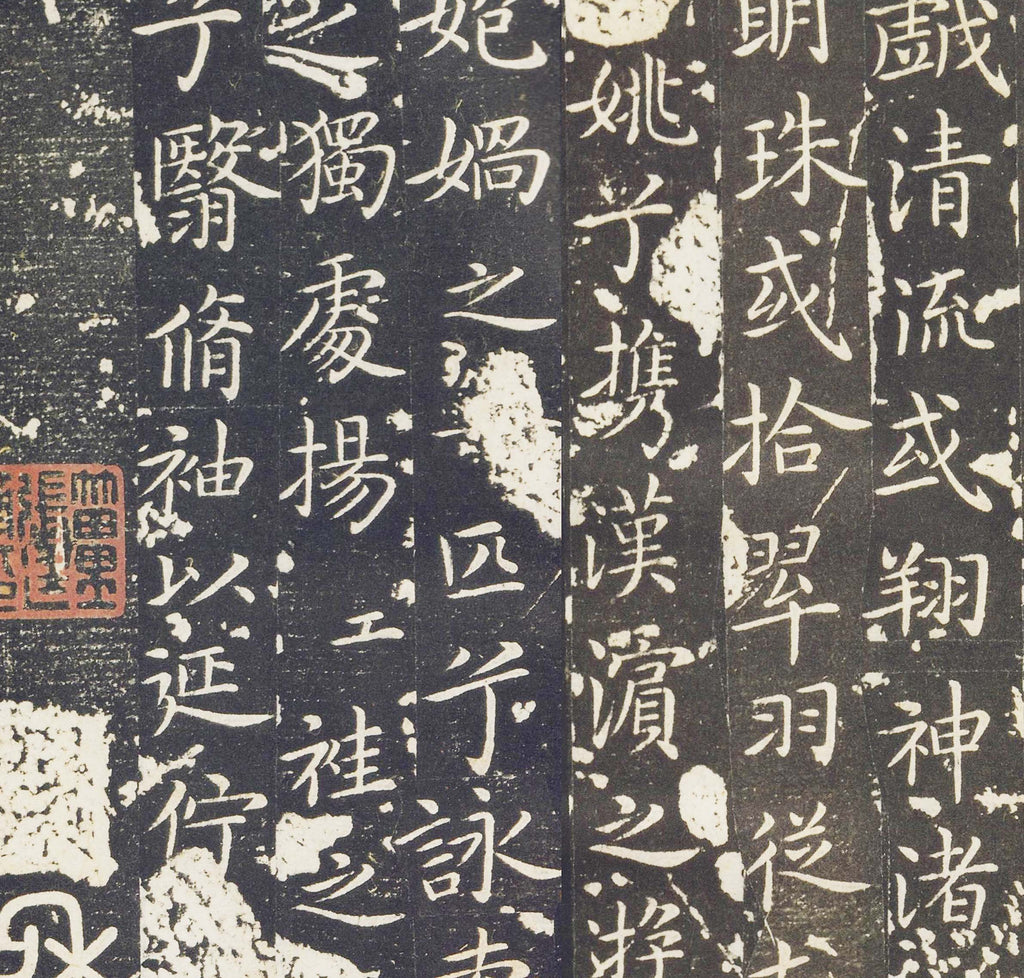 戲清流或翔神渚
明珠或拾翠羽從
姚兮攜漢濱之
媧之匹兮詠牽
之獨處揚工袿之
兮翳脩袖以延佇